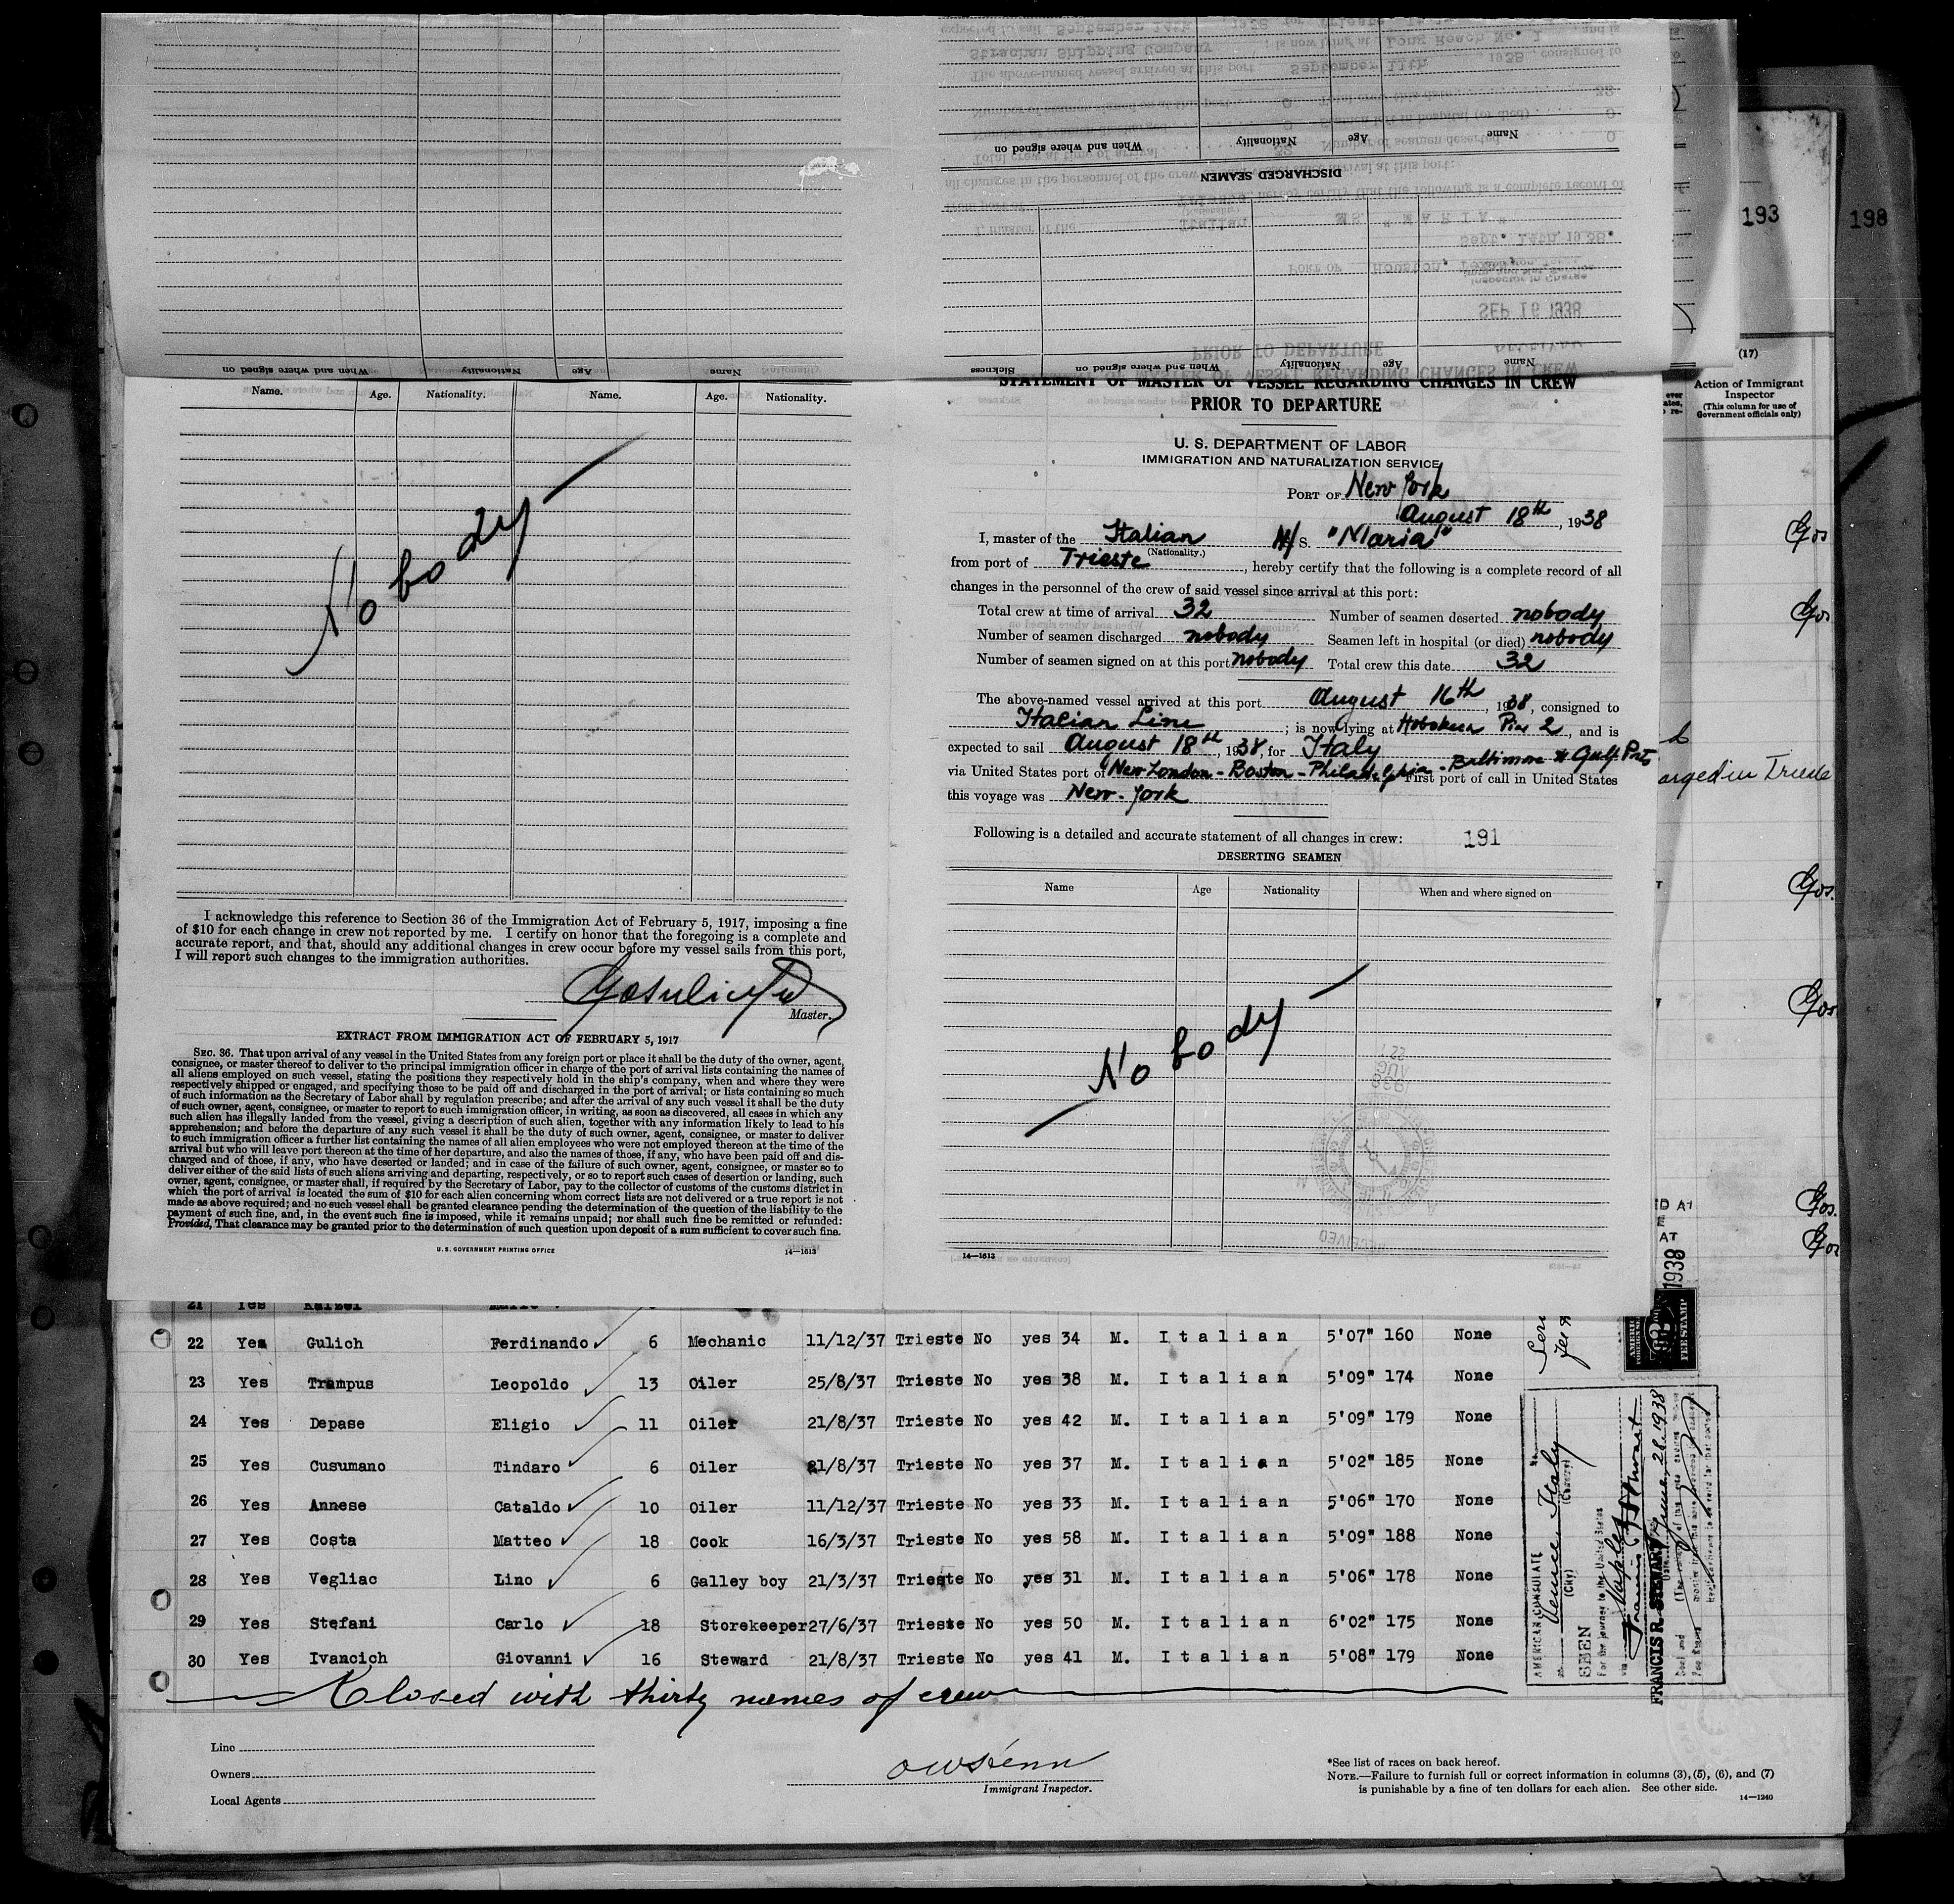 When and where signed on Nationality Age Name
DISCHARGED SEAMEN
When and where signed on Nationality Age Name
Sickness When and where signed on Nationality Age Name
193
198
(17)
Action of Immigrant
Inspector
(This column for use of
Government officials only)
Name. Age. Nationality. Name. Age. Nationality.
Nobody
I acknowledge this reference to Section 36 of the Immigration Act of February 5, 1917, imposing a fine
of $10 for each change in crew not reported by me. I certify on honor that the foregoing is a complete and
accurate report, and that, should any additional changes in crew occur before my vessel sails from this port,
I will report such changes to the immigration authorities.
Master.
EXTRACT FROM IMMIGRATION ACT OF FEBRUARY 5, 1917
SEC. 36. That upon arrival of any vessel in the United States from any foreign port or place it shall be the duty of the owner, agent,
consignee, or master thereof to deliver to the principal immigration officer in charge of the port of arrival lists containing the names of
all aliens employed on such vessel, stating the positions they respectively hold in the ship's company, when and where they were
respectively shipped or engaged, and specifying those to be paid off and discharged in the port of arrival; or lists containing so much
of such information as the Secretary of Labor shall by regulation prescribe; and after the arrival of any such vessel it shall be the duty
of such owner, agent, consignee, or master to report to such immigration officer, in writing, as soon as discovered, all cases in which any
such alien has illegally landed from the vessel, giving a description of such alien, together with any information likely to lead to his
apprehension; and before the departure of any such vessel it shall be the duty of such owner, agent, consignee, or master to deliver
to such immigration officer a further list containing the names of all alien employees who were not employed thereon at the time of the
arrival but who will leave port thereon at the time of her departure, and also the names of those, if any, who have been paid off and dis-
charged and of those, if any, who have deserted or landed; and in case of the failure of such owner, agent, consignee, or master so to
deliver either of the said lists of such aliens arriving and departing, respectively, or so to report such cases of desertion or landing, such
owner, agent, consignee, or master shall, if required by the Secretary of Labor, pay to the collector of customs of the customs district in
which the port of arrival is located the sum of $10 for each alien concerning whom correct lists are not delivered or a true report is not
made as above required; and no such vessel shall be granted clearance pending the determination of the question of the liability to the
payment of such fine, and, in the event such fine is imposed, while it remains unpaid; nor shall such fine be remitted or refunded:
Provided, That clearance may be granted prior to the determination of such question upon deposit of a sum sufficient to cover such fine.
U. S. GOVERNMENT PRINTING OFFICE 14—1613
STATEMENT OF MASTER OF VESSEL REGARDING CHANGES IN CREW
PRIOR TO DEPARTURE
U. S. DEPARTMENT OF LABOR
IMMIGRATION AND NATURALIZATION SERVICE
PORT OF New York
August 18th, 1938
I, master of the Italian M/S. "Maria"
(Nationality.)
from port of Trieste, hereby certify that the following is a complete record of all
changes in the personnel of the crew of said vessel since arrival at this port:
Total crew at time of arrival 32 Number of seamen deserted nobody
Number of seamen discharged nobody Seamen left in hospital (or died) nobody
Number of seamen signed on at this port nobody Total crew this date 32
The above-named vessel arrived at this port August 16th, 1938, consigned to
Italian Line; is now lying at Hoboken Pier 2, and is
expected to sail August 18th, 1938, for Italy
via United States port of New London - Boston - Philadelphia - Baltimore & Gulf Pts First port of call in United States
this voyage was New-York
Following is a detailed and accurate statement of all changes in crew: 191
DESERTING SEAMEN
Name Age Nationality When and where signed on
Nobody
14—1613
Gos
Gos
arged in Trieste
Gos.
Gos
Gos.
Gos
1938
22 Yes Gulich Ferdinando 6 Mechanic 11/12/37 Trieste No yes 34 M. Italian 5'07" 160 None
23 Yes Trampus Leopoldo 13 Oiler 25/8/37 Trieste No yes 38 M. Italian 5'09" 174 None
24 Yes Depase Eligio 11 Oiler 21/8/37 Trieste No yes 42 M. Italian 5'09" 179 None
25 Yes Cusumano Tindaro 6 Oiler 21/8/37 Trieste No yes 37 M. Italian 5'02" 185 None
26 Yes Annese Cataldo 10 Oiler 11/12/37 Trieste No yes 33 M. Italian 5'06" 170 None
27 Yes Costa Matteo 18 Cook 16/3/37 Trieste No yes 58 M. Italian 5'09" 188 None
28 Yes Vegliac Lino 6 Galley boy 21/3/37 Trieste No yes 31 M. Italian 5'06" 178 None
29 Yes Stefani Carlo 18 Storekeeper 27/6/37 Trieste No yes 50 M. Italian 6'02" 175 None
30 Yes Ivancich Giovanni 16 Steward 21/8/37 Trieste No yes 41 M. Italian 5'08" 179 None
Closed with thirty names of crew
AMERICAN CONSULATE
Venice, Italy
(City) (Country)
SEEN
For the journey to the United States
via Naples
FRANCIS R. STEWART
June, 28, 1938
FEE STAMP
Line
Owners
Local Agents
Immigrant Inspector.
*See list of races on back hereof.
NOTE.—Failure to furnish full or correct information in columns (3), (5), (6), and (7)
is punishable by a fine of ten dollars for each alien. See other side.
14—1240